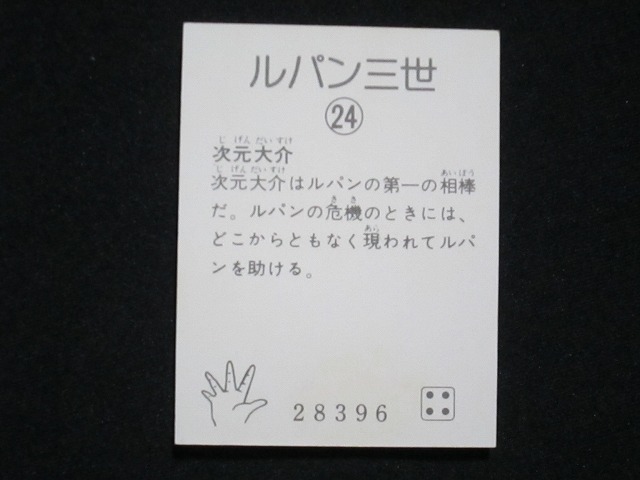 ルパン三世
24
じ げん だい すけ
次元大介
じ げん だい すけ あい ぼう
次元大介はルパンの第一の相棒
き き
だ。ルパンの危機のときには、
あら
どこからともなく現われてルパ
ンを助ける。
28396